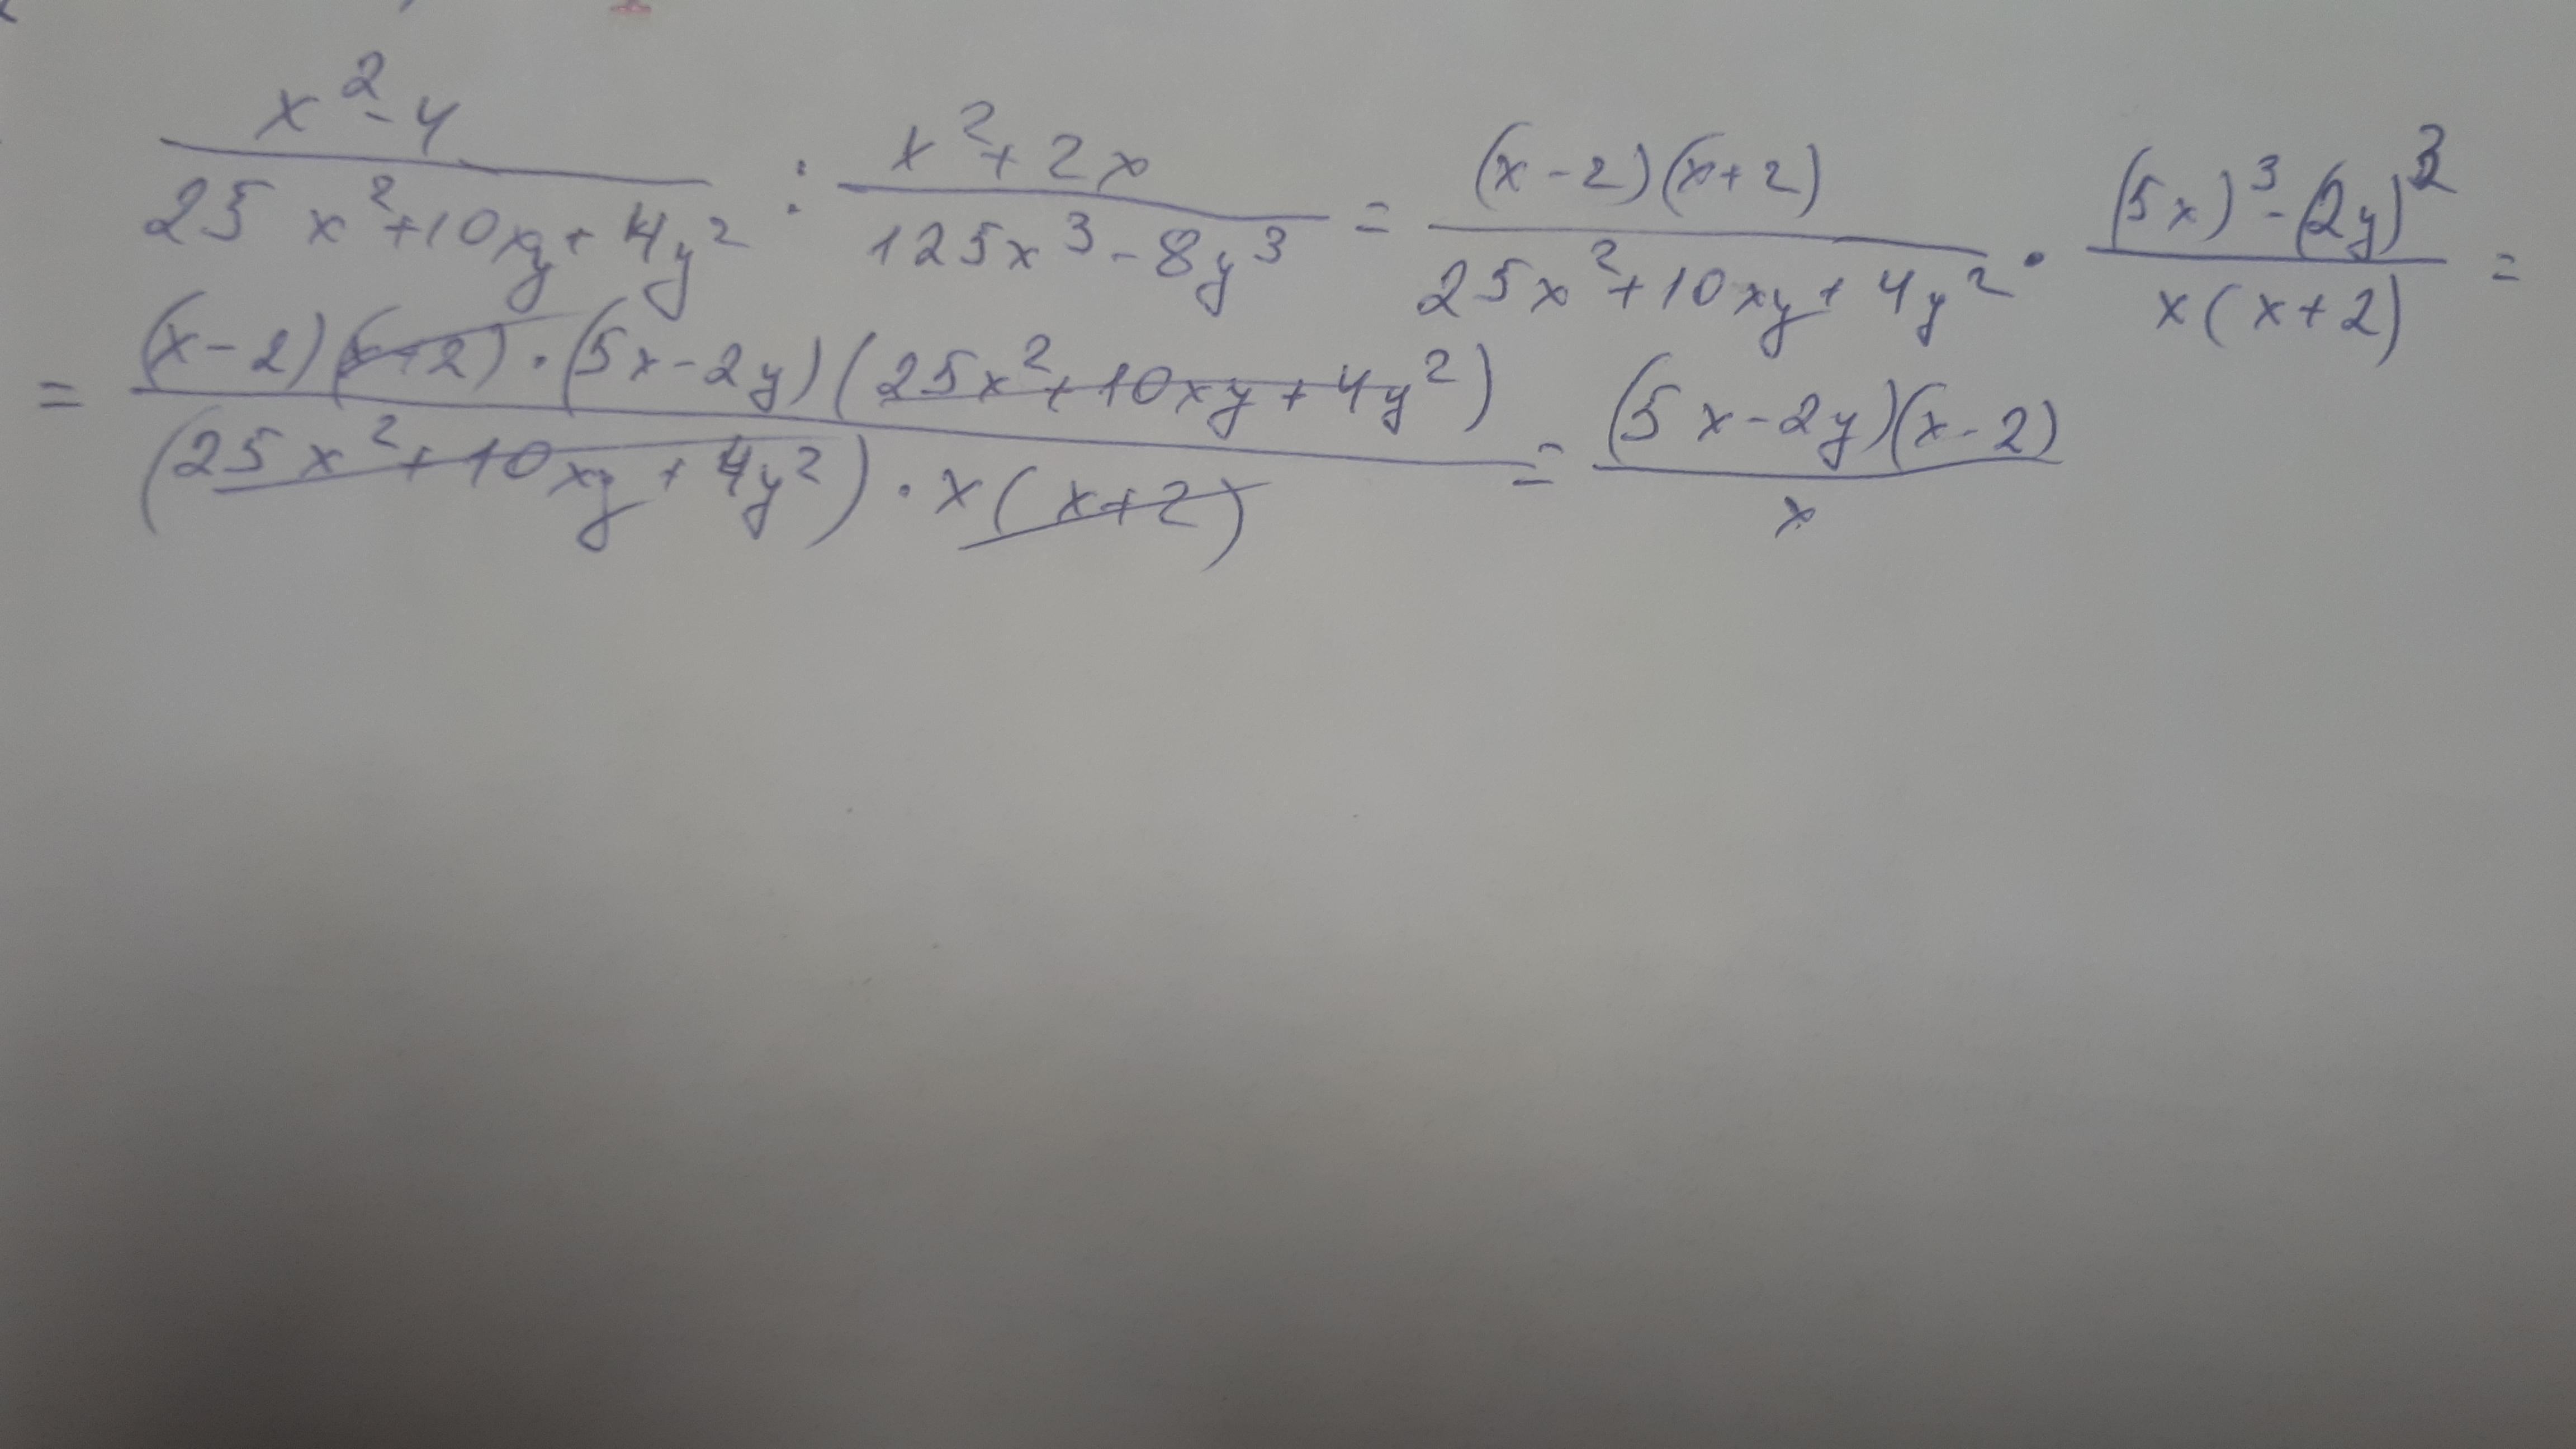 (x²-4)/(25x²+10xy+4y²) : (x²+2x)/(125x³-8y³) = ((x-2)(x+2))/(25x²+10xy+4y²) · ((5x)³-(2y)³)/(x(x+2)) =
= ((x-2)(x+2)·(5x-2y)(25x²+10xy+4y²))/((25x²+10xy+4y²)·x(x+2)) = ((5x-2y)(x-2))/x